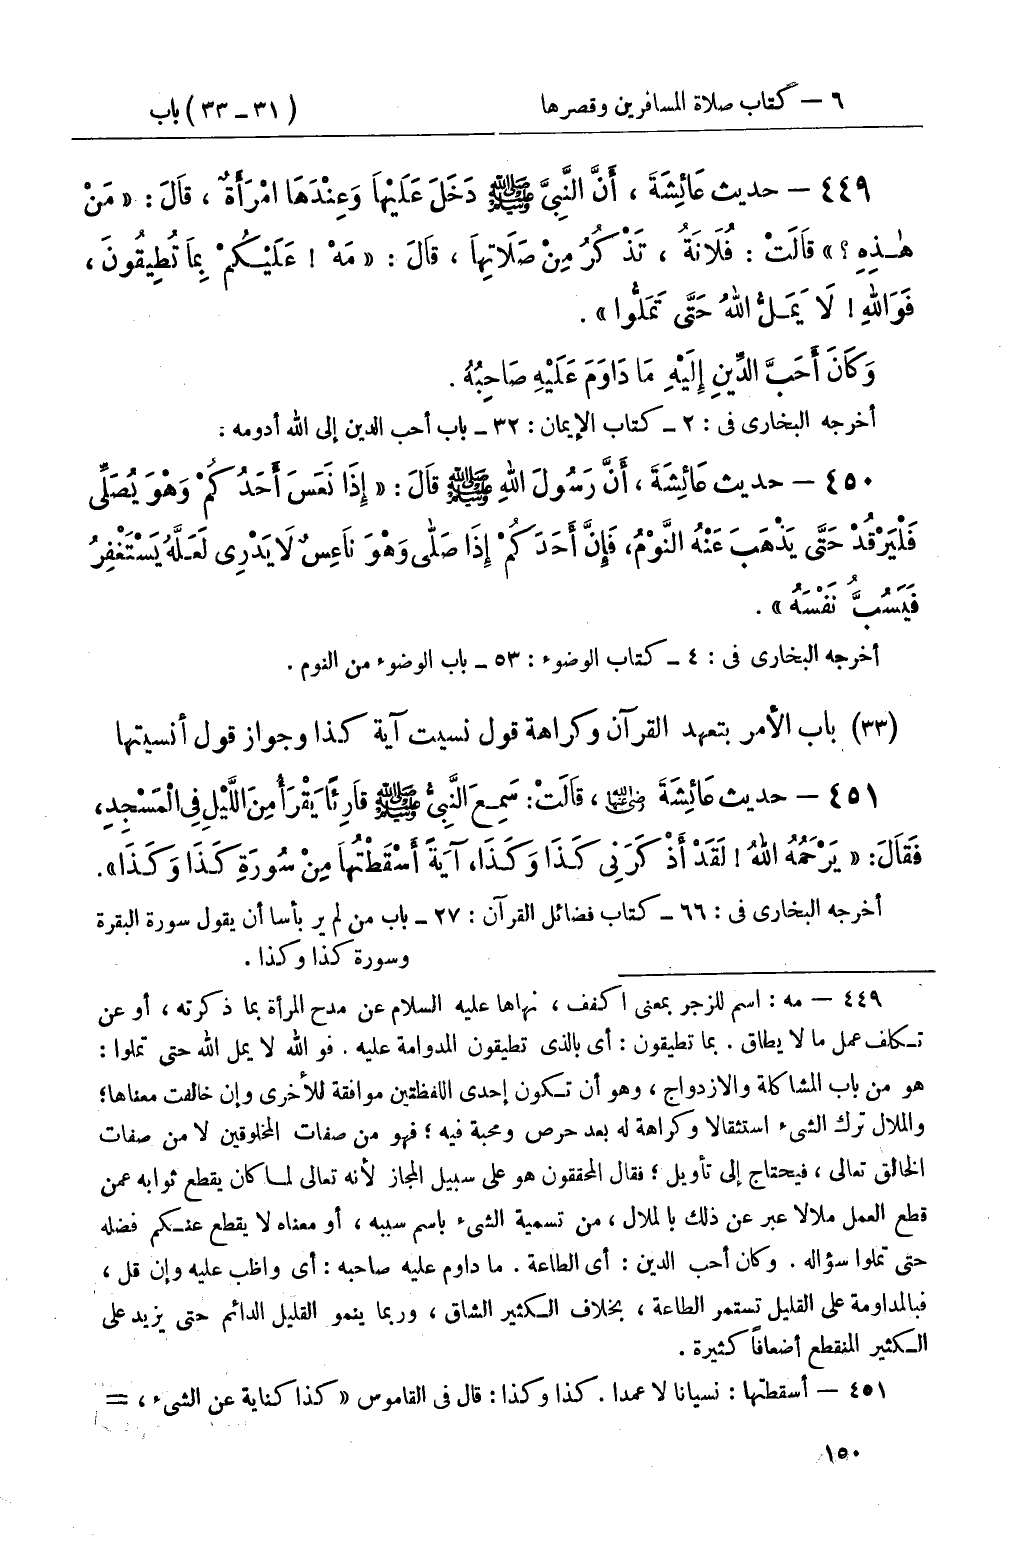 ٦ – كتاب صلاة المسافرين وقصرها (٣١ – ٣٣) باب
٤٤٩ – حديث عَائِشَةَ ، أَنَّ النَّبِيَّ ﷺ دَخَلَ عَلَيْهَا وَعِنْدَهَا امْرَأَةٌ ، قَالَ : « مَنْ
هٰذِهِ ؟ » قَالَتْ : فُلَانَةُ ، تَذْكُرُ مِنْ صَلَاتِهَا ، قَالَ : « مَهْ ! عَلَيْكُمْ بِمَا تُطِيقُونَ ،
فَوَاللهِ ! لَا يَمَلُّ اللهُ حَتَّى تَمَلُّوا » .
وَكَانَ أَحَبَّ الدِّينِ إِلَيْهِ مَا دَاوَمَ عَلَيْهِ صَاحِبُهُ .
أخرجه البخارى فى : ٢ – كتاب الإيمان : ٣٢ – باب أحب الدين إلى الله أدومه :
٤٥٠ – حديث عَائِشَةَ ، أَنَّ رَسُولَ اللهِ ﷺ قَالَ : « إِذَا نَعَسَ أَحَدُكُمْ وَهْوَ يُصَلِّى
فَلْيَرْقُدْ حَتَّى يَذْهَبَ عَنْهُ النَّوْمُ، فَإِنَّ أَحَدَكُمْ إِذَا صَلَّى وَهْوَ نَاعِسٌ لَا يَدْرِى لَعَلَّهُ يَسْتَغْفِرُ
فَيَسُبُّ نَفْسَهُ » .
أخرجه البخارى فى : ٤ – كتاب الوضوء : ٥٣ – باب الوضوء من النوم .
(٣٣) باب الأمر بتعهد القرآن وكراهة قول نسيت آية كذا وجواز قول أنسيتها
٤٥١ – حديث عَائِشَةَ رضي الله عنها ، قَالَتْ: سَمِعَ النَّبِيُّ ﷺ قَارِئًا يَقْرَأُ مِنَ اللَّيْلِ فِى الْمَسْجِدِ،
فَقَالَ: « يَرْحَمُهُ اللهُ ! لَقَدْ أَذْكَرَنِى كَذَا وَكَذَا، آيَةً أَسْقَطْتُهَا مِنْ سُورَةِ كَذَا وَكَذَا».
أخرجه البخارى فى : ٦٦ – كتاب فضائل القرآن : ٢٧ – باب من لم ير بأسا أن يقول سورة البقرة
وسورة كذا وكذا .
٤٤٩ – مه : اسم للزجر بمعنى اكفف ، نهاها عليه السلام عن مدح المرأة بما ذكرته ، أو عن
تكلف عمل ما لا يطاق . بما تطيقون : أى بالذى تطيقون المداومة عليه . فو الله لا يمل الله حتى تملوا :
هو من باب المشاكلة والازدواج ، وهو أن تكون إحدى اللفظتين موافقة للأخرى وإن خالفت معناها؛
والملال ترك الشىء استثقالا وكراهة له بعد حرص ومحبة فيه ؛ فهو من صفات المخلوقين لا من صفات
الخالق تعالى ، فيحتاج إلى تأويل ؛ فقال المحققون هو على سبيل المجاز لأنه تعالى لما كان يقطع ثوابه عمن
قطع العمل ملالا عبر عن ذلك بالملال ، من تسمية الشىء باسم سببه ، أو معناه لا يقطع عنكم فضله
حتى تملوا سؤاله . وكان أحب الدين : أى الطاعة . ما داوم عليه صاحبه : أى واظب عليه وإن قل ،
فبالمداومة على القليل تستمر الطاعة ، بخلاف الكثير الشاق ، وربما ينمو القليل الدائم حتى يزيد على
الكثير المنقطع أضعافاً كثيرة .
٤٥١ – أسقطتها : نسيانا لا عمدا . كذا وكذا : قال فى القاموس « كذا كناية عن الشىء ، =
١٥٠